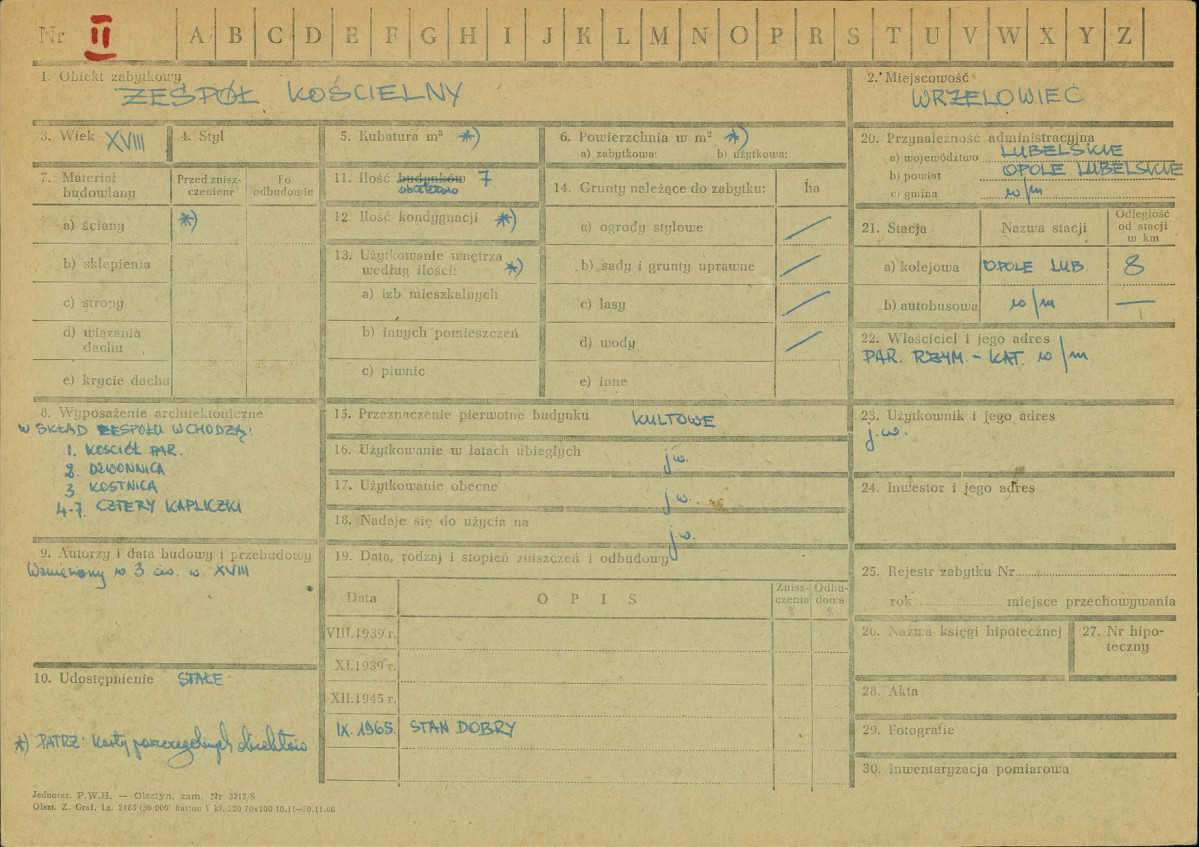 Nr II A B C D E F G H I J K L M N O P R S T U V W X Y Z
1. Obiekt zabytkowy
ZESPÓŁ KOŚCIELNY
2. Miejscowość
WRZELOWIEC
3. Wiek XVIII
4. Styl
5. Kubatura m³ *)
6. Powierzchnia w m² *)
a) zabytkowa: b) użytkowa:
7. Materiał budowlany
Przed zniszczeniem
Po odbudowie
a) ściany *)
b) sklepienia
c) stropy
d) wiązania dachu
e) krycie dachu
8. Wyposażenie architektoniczne
W SKŁAD ZESPOŁU WCHODZĄ:
1. KOŚCIÓŁ PAR.
2. DZWONNICA
3 KOSTNICA
4-7. CZTERY KAPLICZKI
9. Autorzy i data budowy i przebudowy
Wzniesiony w 3. ćw. w. XVIII
10. Udostępnienie STAŁE
*) PATRZ: Karty poszczególnych obiektów
11. Ilość budynków 7
obiektów
12. Ilość kondygnacji *)
13. Użytkowanie wnętrza według ilości: *)
a) izb mieszkalnych
b) innych pomieszczeń
c) piwnic
14. Grunty należące do zabytku: ha
a) ogrody stylowe /
b) sady i grunty uprawne /
c) lasy /
d) wody /
e) inne
15. Przeznaczenie pierwotne budynku KULTOWE
16. Użytkowanie w latach ubiegłych j.w.
17. Użytkowanie obecne j.w.
18. Nadaje się do użycia na j.w.
19. Data, rodzaj i stopień zniszczeń i odbudowy
Data
OPIS
Zniszczenia %
Odbudowa %
VIII.1939 r.
XI.1939 r.
XII.1945 r.
IX.1965. STAN DOBRY
20. Przynależność administracyjna
a) województwo LUBELSKIE
b) powiat OPOLE LUBELSKIE
c) gmina w/m
21. Stacja
Nazwa stacji
Odległość od stacji w km
a) kolejowa OPOLE LUB. 8
b) autobusowa w/m —
22. Właściciel i jego adres
PAR. RZYM.-KAT. w/m
23. Użytkownik i jego adres
j.w.
24. Inwestor i jego adres
25. Rejestr zabytku Nr
rok miejsce przechowywania
26. Nazwa księgi hipotecznej
27. Nr hipoteczny
28. Akta
29. Fotografie
30. Inwentaryzacja pomiarowa
Jednoraz. P.W.H. — Olsztyn, zam. Nr 3215/S
Olszt. Z. Graf, Lz. 2485 (50 000) karton V kl. 220 70x100 10.11—30.11.60